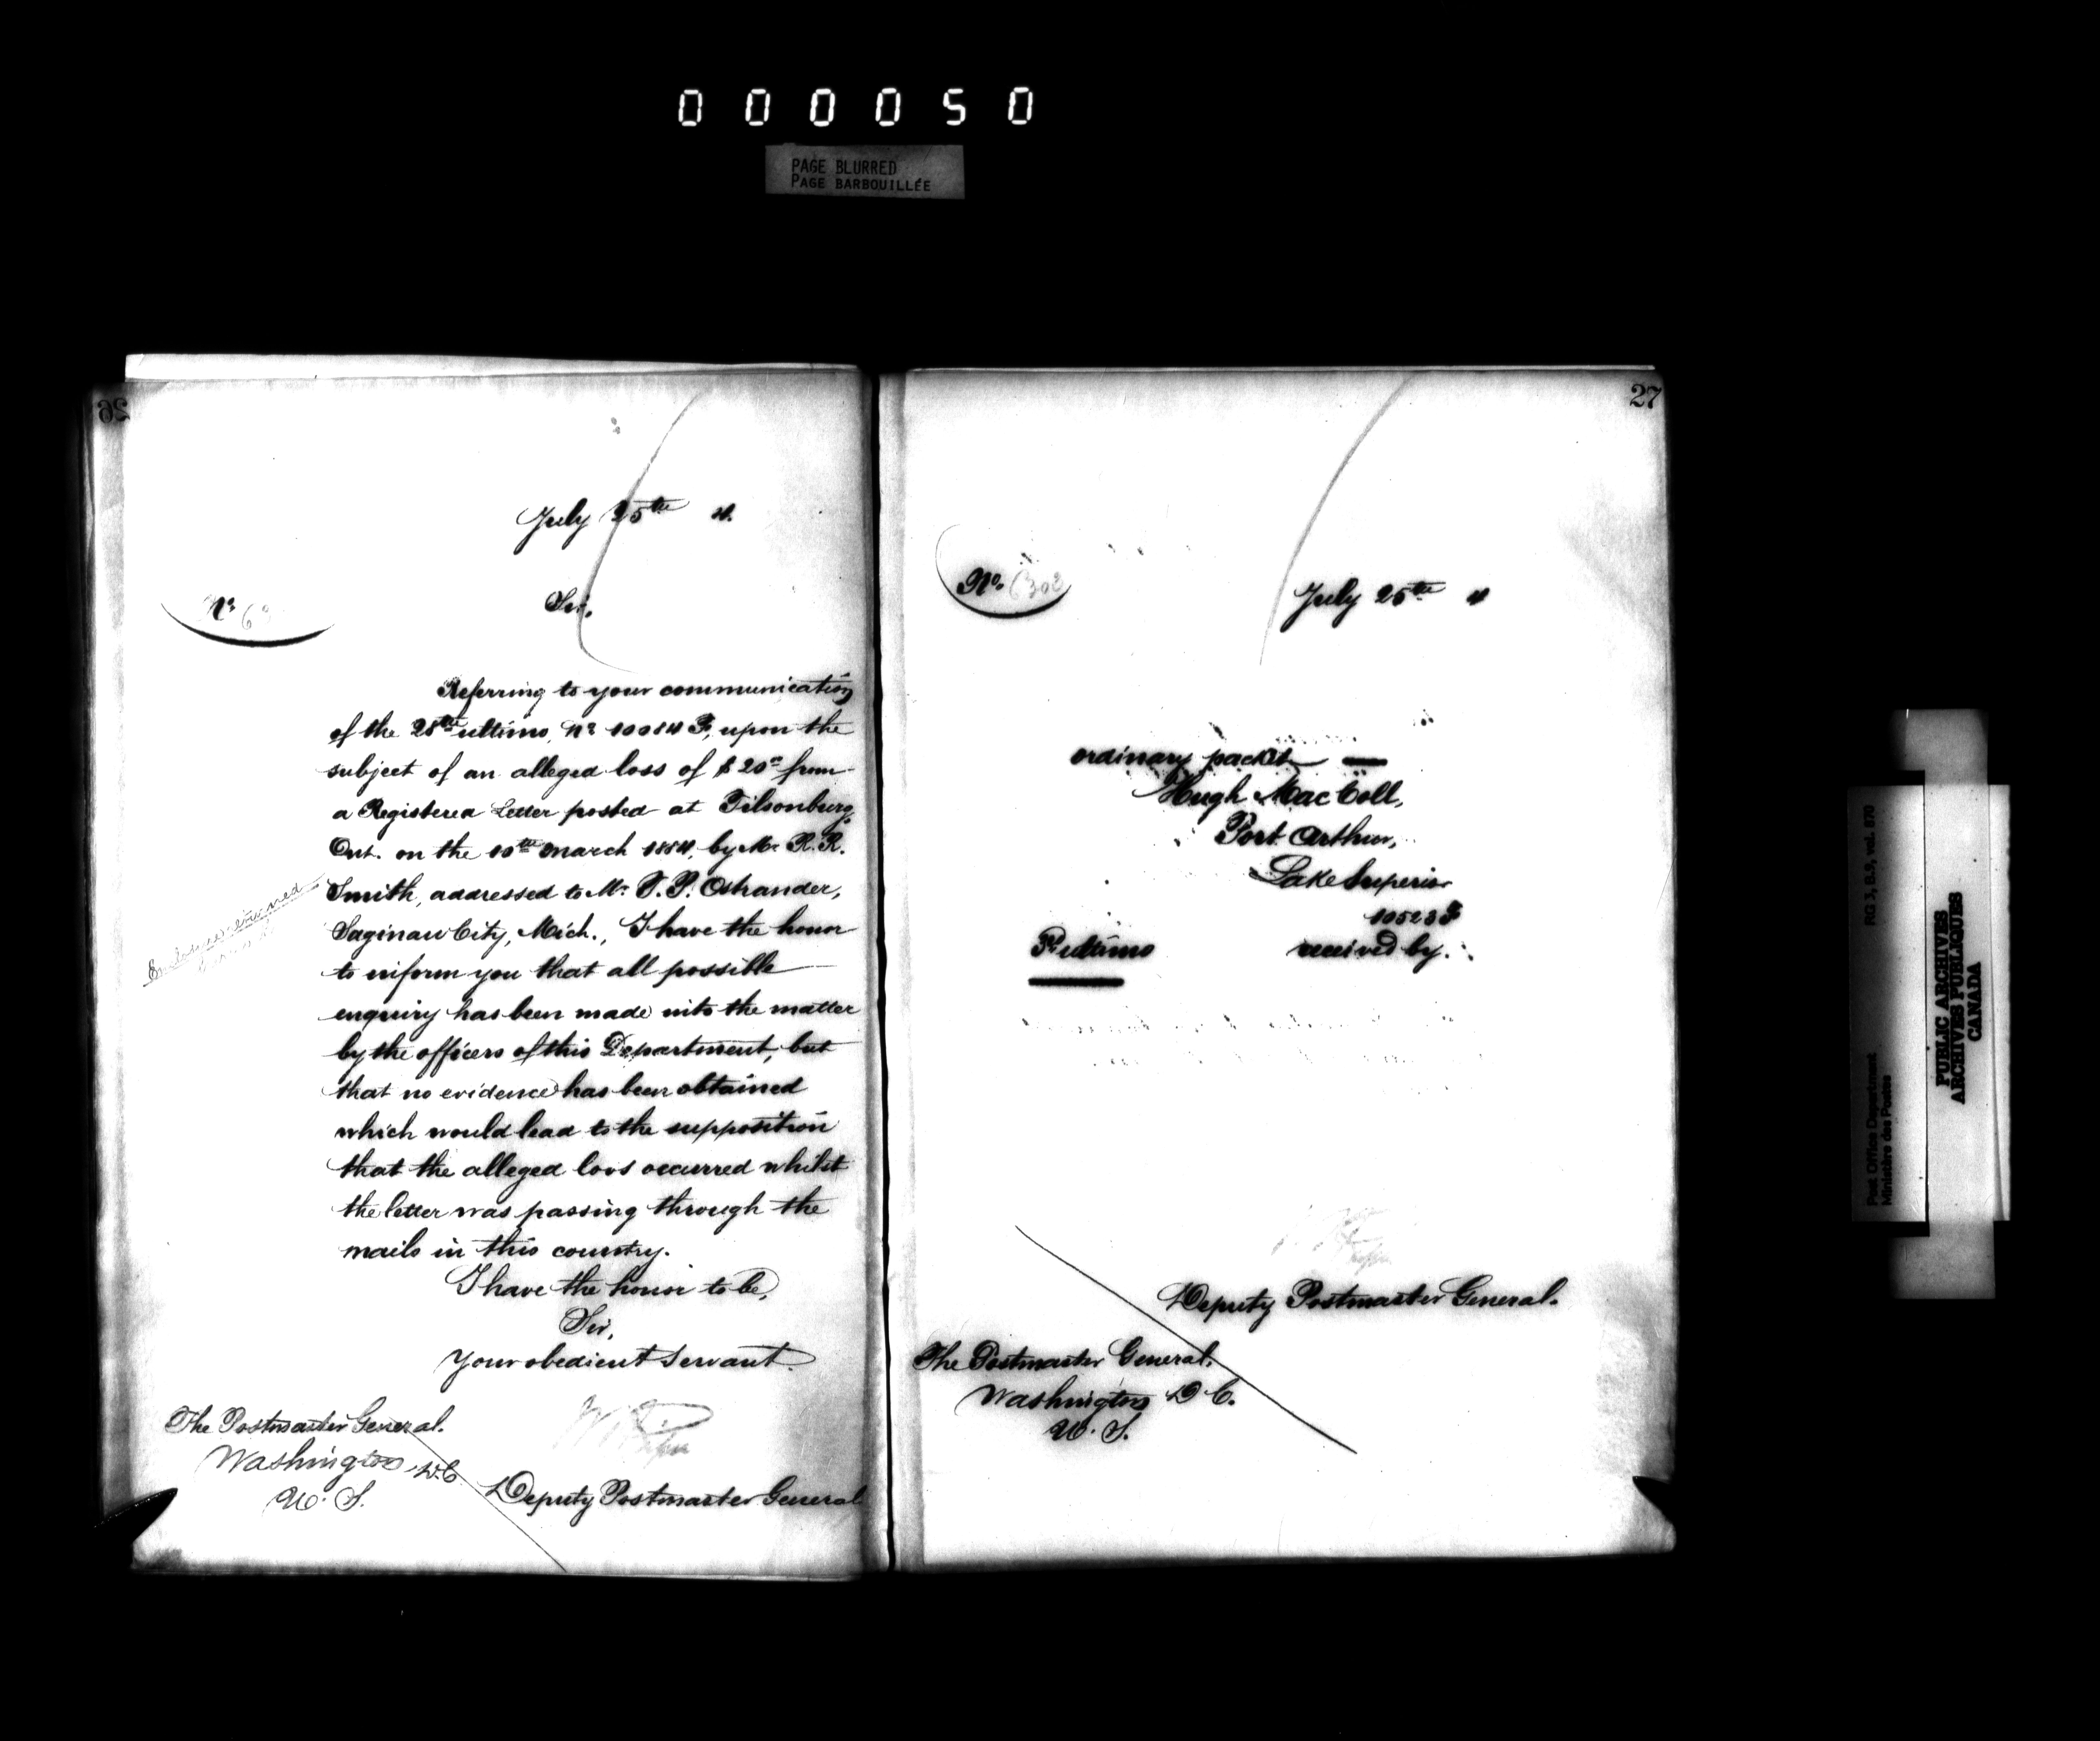 000050
PAGE BLURRED
PAGE BARBOUILLÉE
26
July 25th 4.
No 63
Sir,
Referring to your communication
of the 28th ultimo, No 10084 F, upon the
subject of an alleged loss of $20 00 from
a Registered Letter posted at Tilsonburg,
Ont. on the 10th March 1884, by Mr R. R.
Smith, addressed to Mr. T. P. Ostrander,
Saginaw City, Mich., I have the honor
to inform you that all possible
enquiry has been made into the matter
by the officers of this Department, but
that no evidence has been obtained
which would lead to the supposition
that the alleged loss occurred whilst
the letter was passing through the
mails in this country.
I have the honor to be,
Sir,
Your obedient Servant.
Enclosures returned
The Postmaster General.
Washington D.C.
U. S.
Deputy Postmaster General
27
No. 6302
July 25th 4
ordinary packet
Hugh MacColl,
Port Arthur,
Lake Superior
10523 F
ultimo received by.
Deputy Postmaster General.
The Postmaster General.
Washington D C.
U. S.
Post Office Department
Ministère des Postes
RG 3, B.9, vol. 870
PUBLIC ARCHIVES
ARCHIVES PUBLIQUES
CANADA